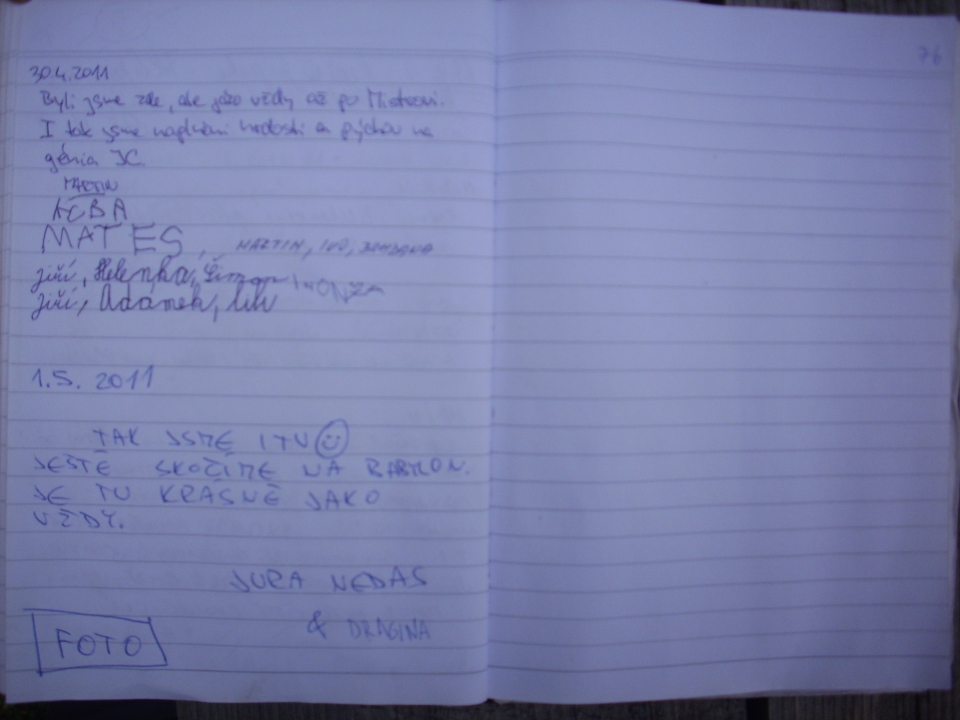 76
30.4.2011
Byli jsme zde, ale jako vždy až po Mistrovi.
I tak jsme naplněni hrdostí a pýchou na
génia JC.
MARTIN
MATES, MARTIN, IVO,
Jiří, Helenka, Šimon, HONZA
Jiří, Adámek,
1.5. 2011
TAK JSME I TU
JEŠTĚ SKOČÍME NA BABYLON.
JE TU KRÁSNĚ JAKO
VŽDY.
JURA NEDAS
& DRAGINA
FOTO